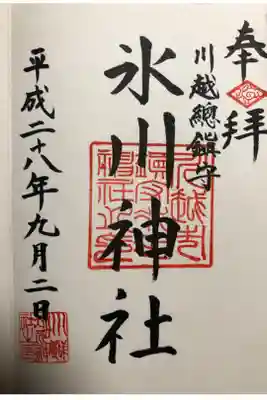 奉拝
川越總鎮守
氷川神社
平成二十八年九月二日